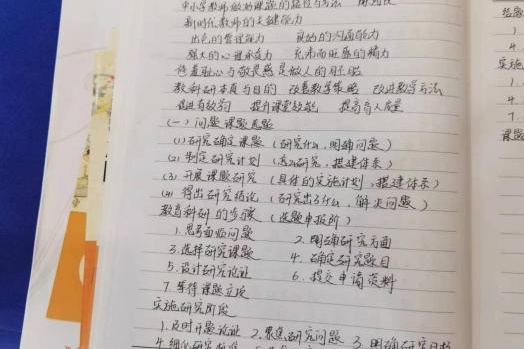 中小学教师做功课题的路径与方法
新时代教师的关键能力
出色的管理能力 良好的沟通能力
强大的心理承受力 充沛而旺盛的精力
教科研本真与目的 改善教学策略 改进教学方法
促进有效学习 提升课堂效能 提高育人质量
(一)问题课题意识
(1)研究确定课题(研究什么,明确问题)
(2)制定研究计划(怎么研究,搭建体系)
(3)开展课题研究(具体的实施计划,搭建体系)
(4)得出研究结论(研究出了什么,解决问题)
教育科研的步骤(选题申报阶)
1.思考面临问题 2.明确研究方面
3.选择研究课题 4.确定研究题目
5.设计研究论证 6.提交申请资料
7.等待课题立项
实施研究阶段
1.及时开题论证 2.聚焦研究问题 3.明确研究目标
4.细化研究
实施
1.
4.
7.
课题